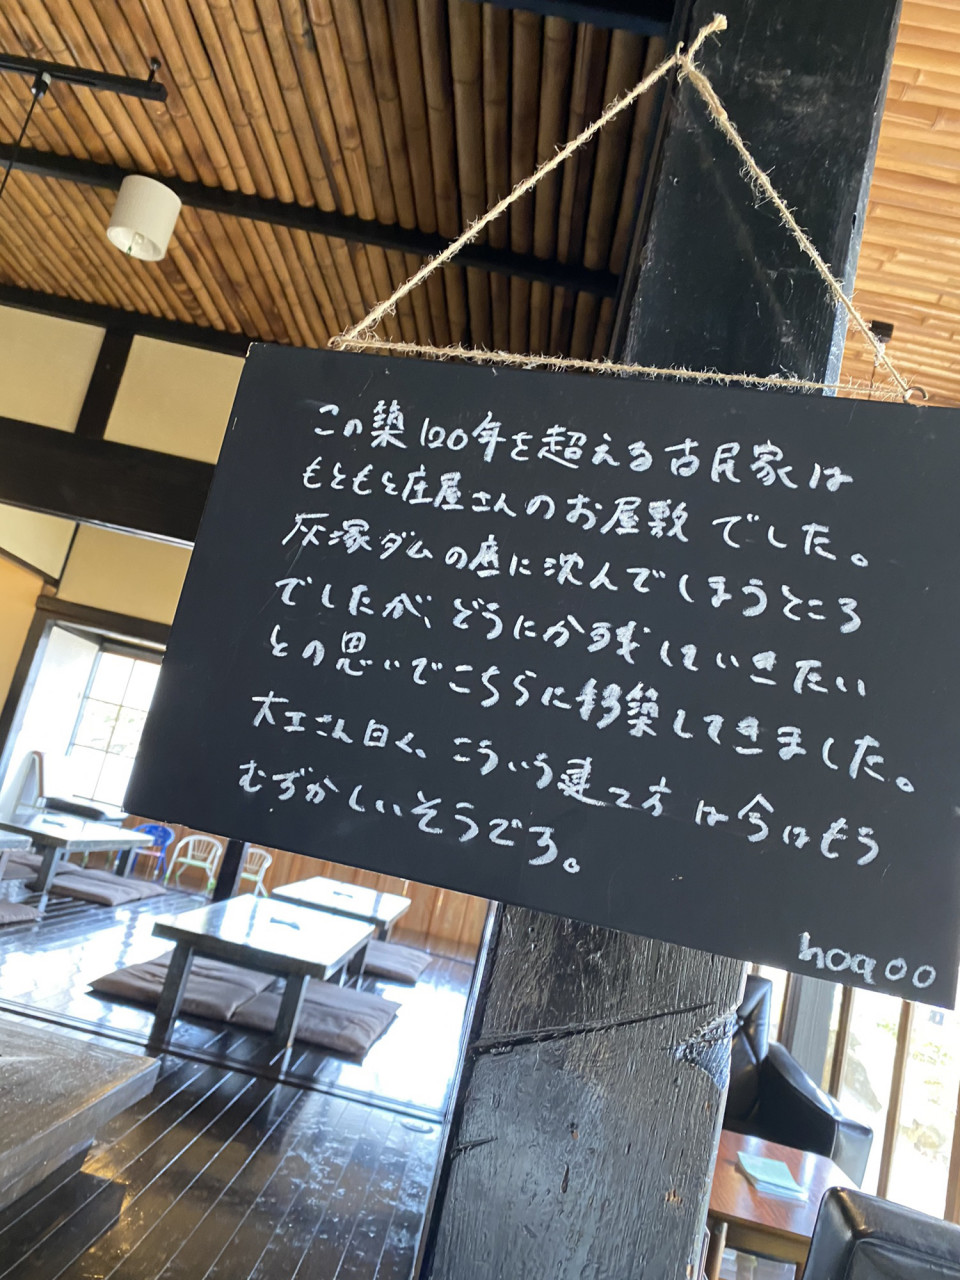 この築120年を超える古民家は
もともと庄屋さんのお屋敷でした。
灰塚ダムの底に沈んでしまうところ
でしたが、どうにか残していきたい
との思いでこちらに移築してきました。
大工さん曰く、こういう建て方は今はもう
むずかしいそうでろ。
hoaoo